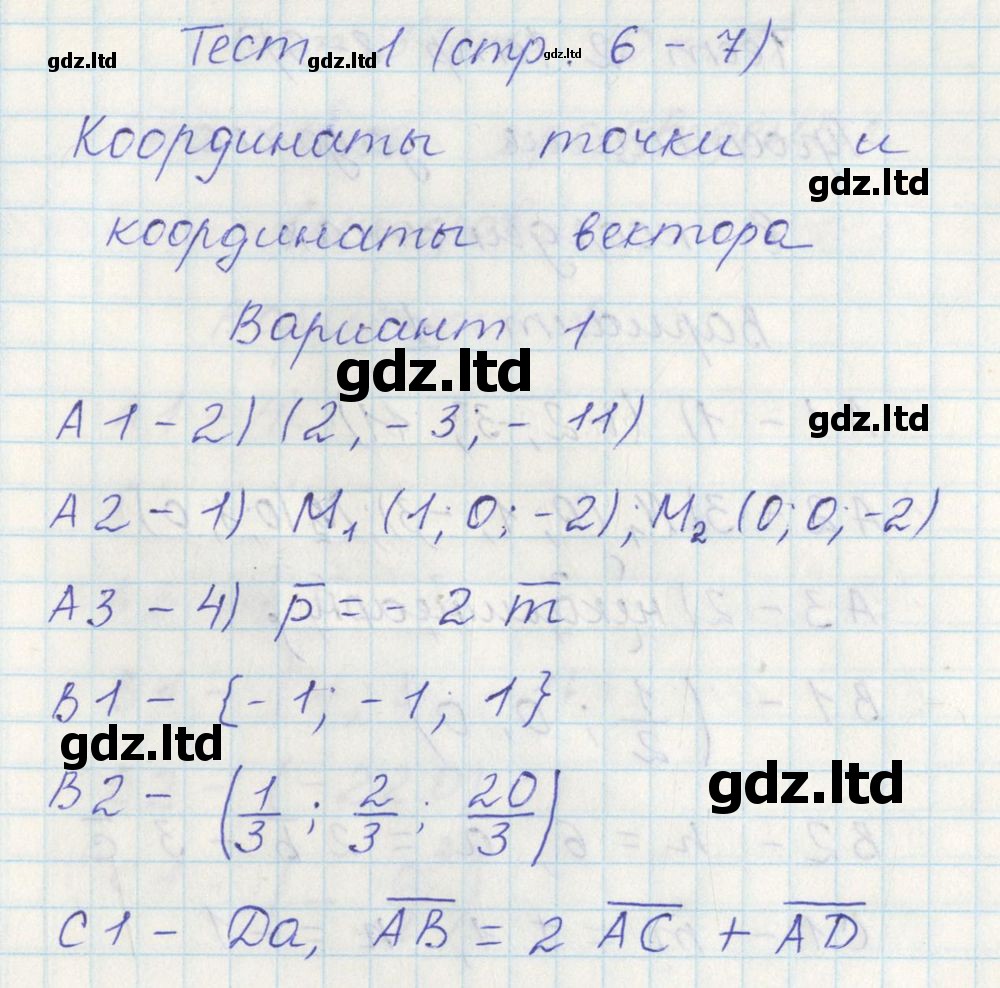 Тест 1 (стр. 6 - 7)
gdz.ltd gdz.ltd gdz.ltd
Координаты точки и
gdz.ltd
координаты вектора
Вариант 1
gdz.ltd
А1 - 2) (2; - 3; - 11)
gdz.ltd
А2 - 1) M₁ (1; 0; -2); M₂ (0; 0; -2)
А3 - 4) p̅ = - 2 m̅
В1 - {- 1; - 1; 1}
gdz.ltd
gdz.ltd
В2 - (1/3; 2/3; 20/3)
С1 - Да, A̅B̅ = 2 A̅C̅ + A̅D̅